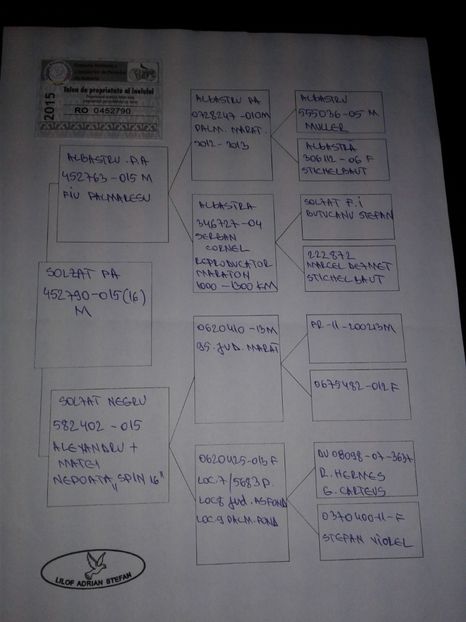 2015
Talon de proprietate al inelului
RO 0452790
ALBASTRU PA
452763-015 M
FIU PALMARESU
SOLZAT PA
452790-015(16)
M
SOLZAT NEGRU
582402-015
ALEXANDRU +
MATEI
NEPOATA "SPIN 16"
ALBASTRU PA
0728247-010M
PALM. MARAT.
2012-2013
ALBASTRA
346727-04
SERBAN
CORNEL
REPRODUCATOR
MARATON
1000-1300 KM
0620410-13M
95. JUD. MARAT
0620425-013F
LOC.7/5683P.
LOC8 JUD. AS FOND
LOC.9 PALM. FOND
ALBASTRU
555036-05 M
MULLER
ALBASTRA
306112-06 F
STICHELBAUT
SOLZAT F.I
BUTUCANU STEFAN
222872
MARCEL DESMET
STICHELBAUT
FR-11-200213M
0675482-012F
DV08098-07-3637
R. HERMES
G. CARTEUS
0370400-11-F
STEFAN VIOREL
LILOF ADRIAN STEFAN